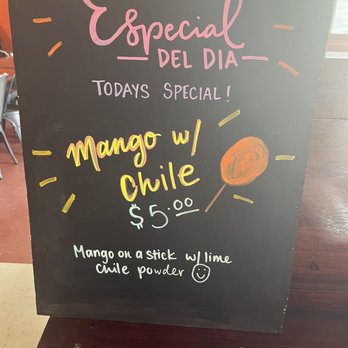 Especial
DEL DIA
TODAYS SPECIAL!
Mango w/
Chile
$5.00
Mango on a stick w/ lime
chile powder ☺